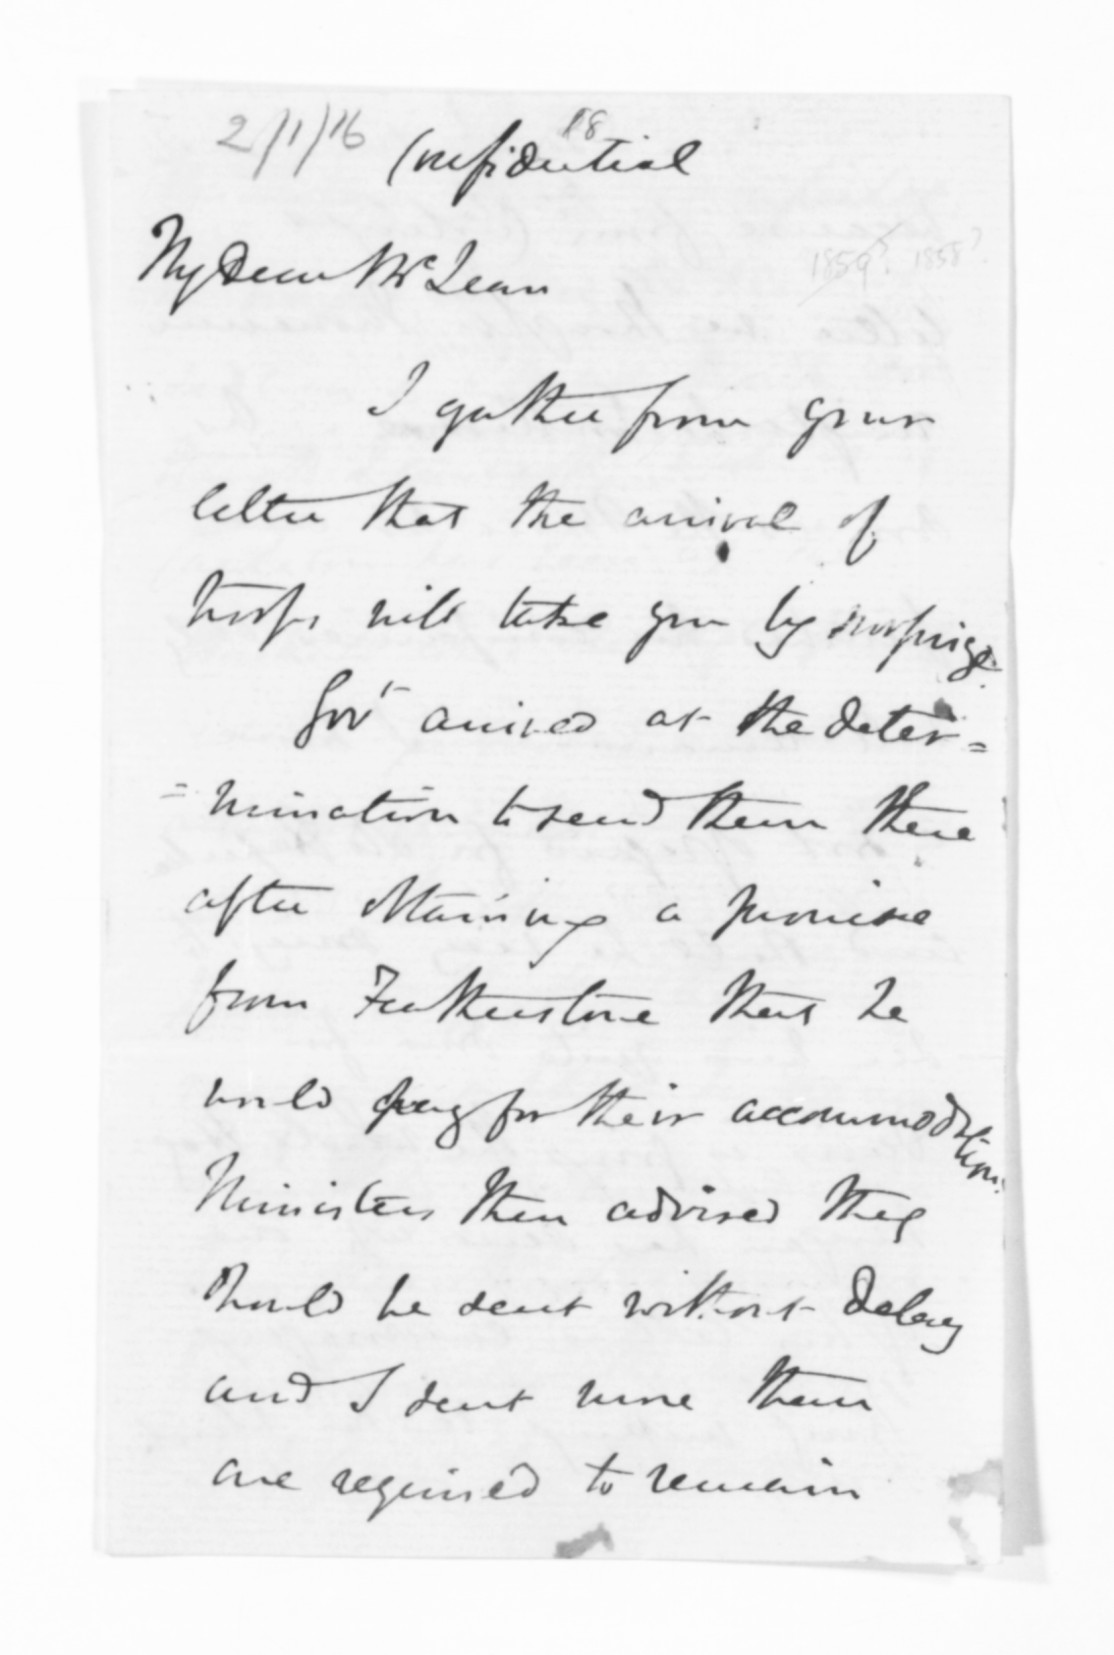 2/1/16
18
Confidential
My Dear McLean
1859? 1858?
I gather from your
letter that the arrival of
troops will take you by surprize.
Govt arrived at the deter=
=mination to send them there
after obtaining a promise
from Featherstone that he
would pay for their accommodation.
Ministers then advised they
should be sent without delay
and I sent more than
are required to remain